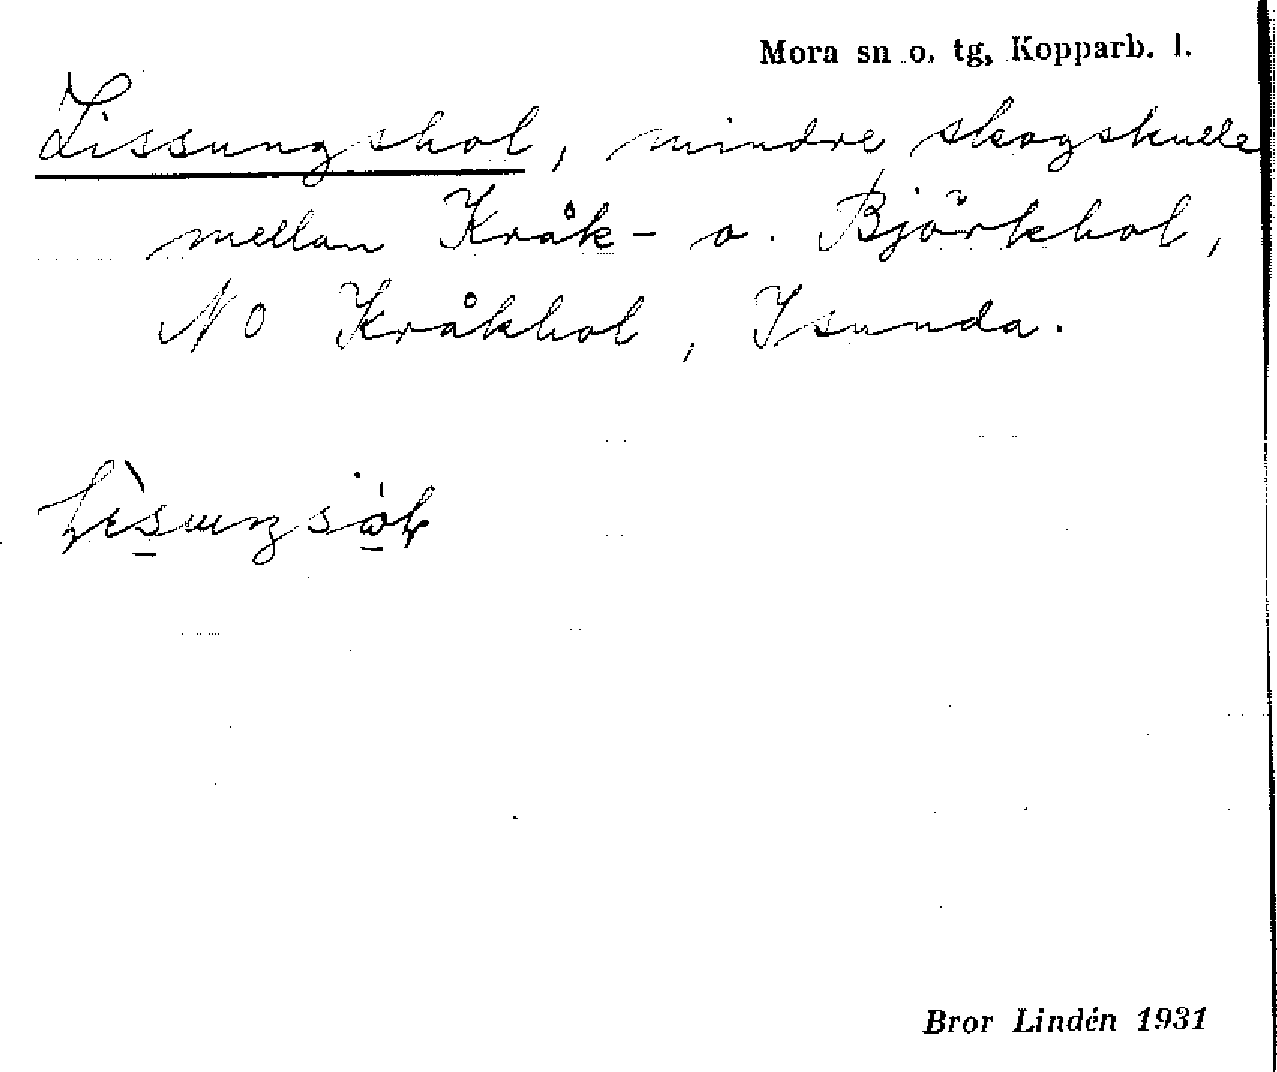 Mora sn o. tg, Kopparb. l.
Lissungshol, mindre skogskulle
mellan Kråk- o. Björkhol,
NO Kråkhol, Isunda.
Bror Lindén 1931